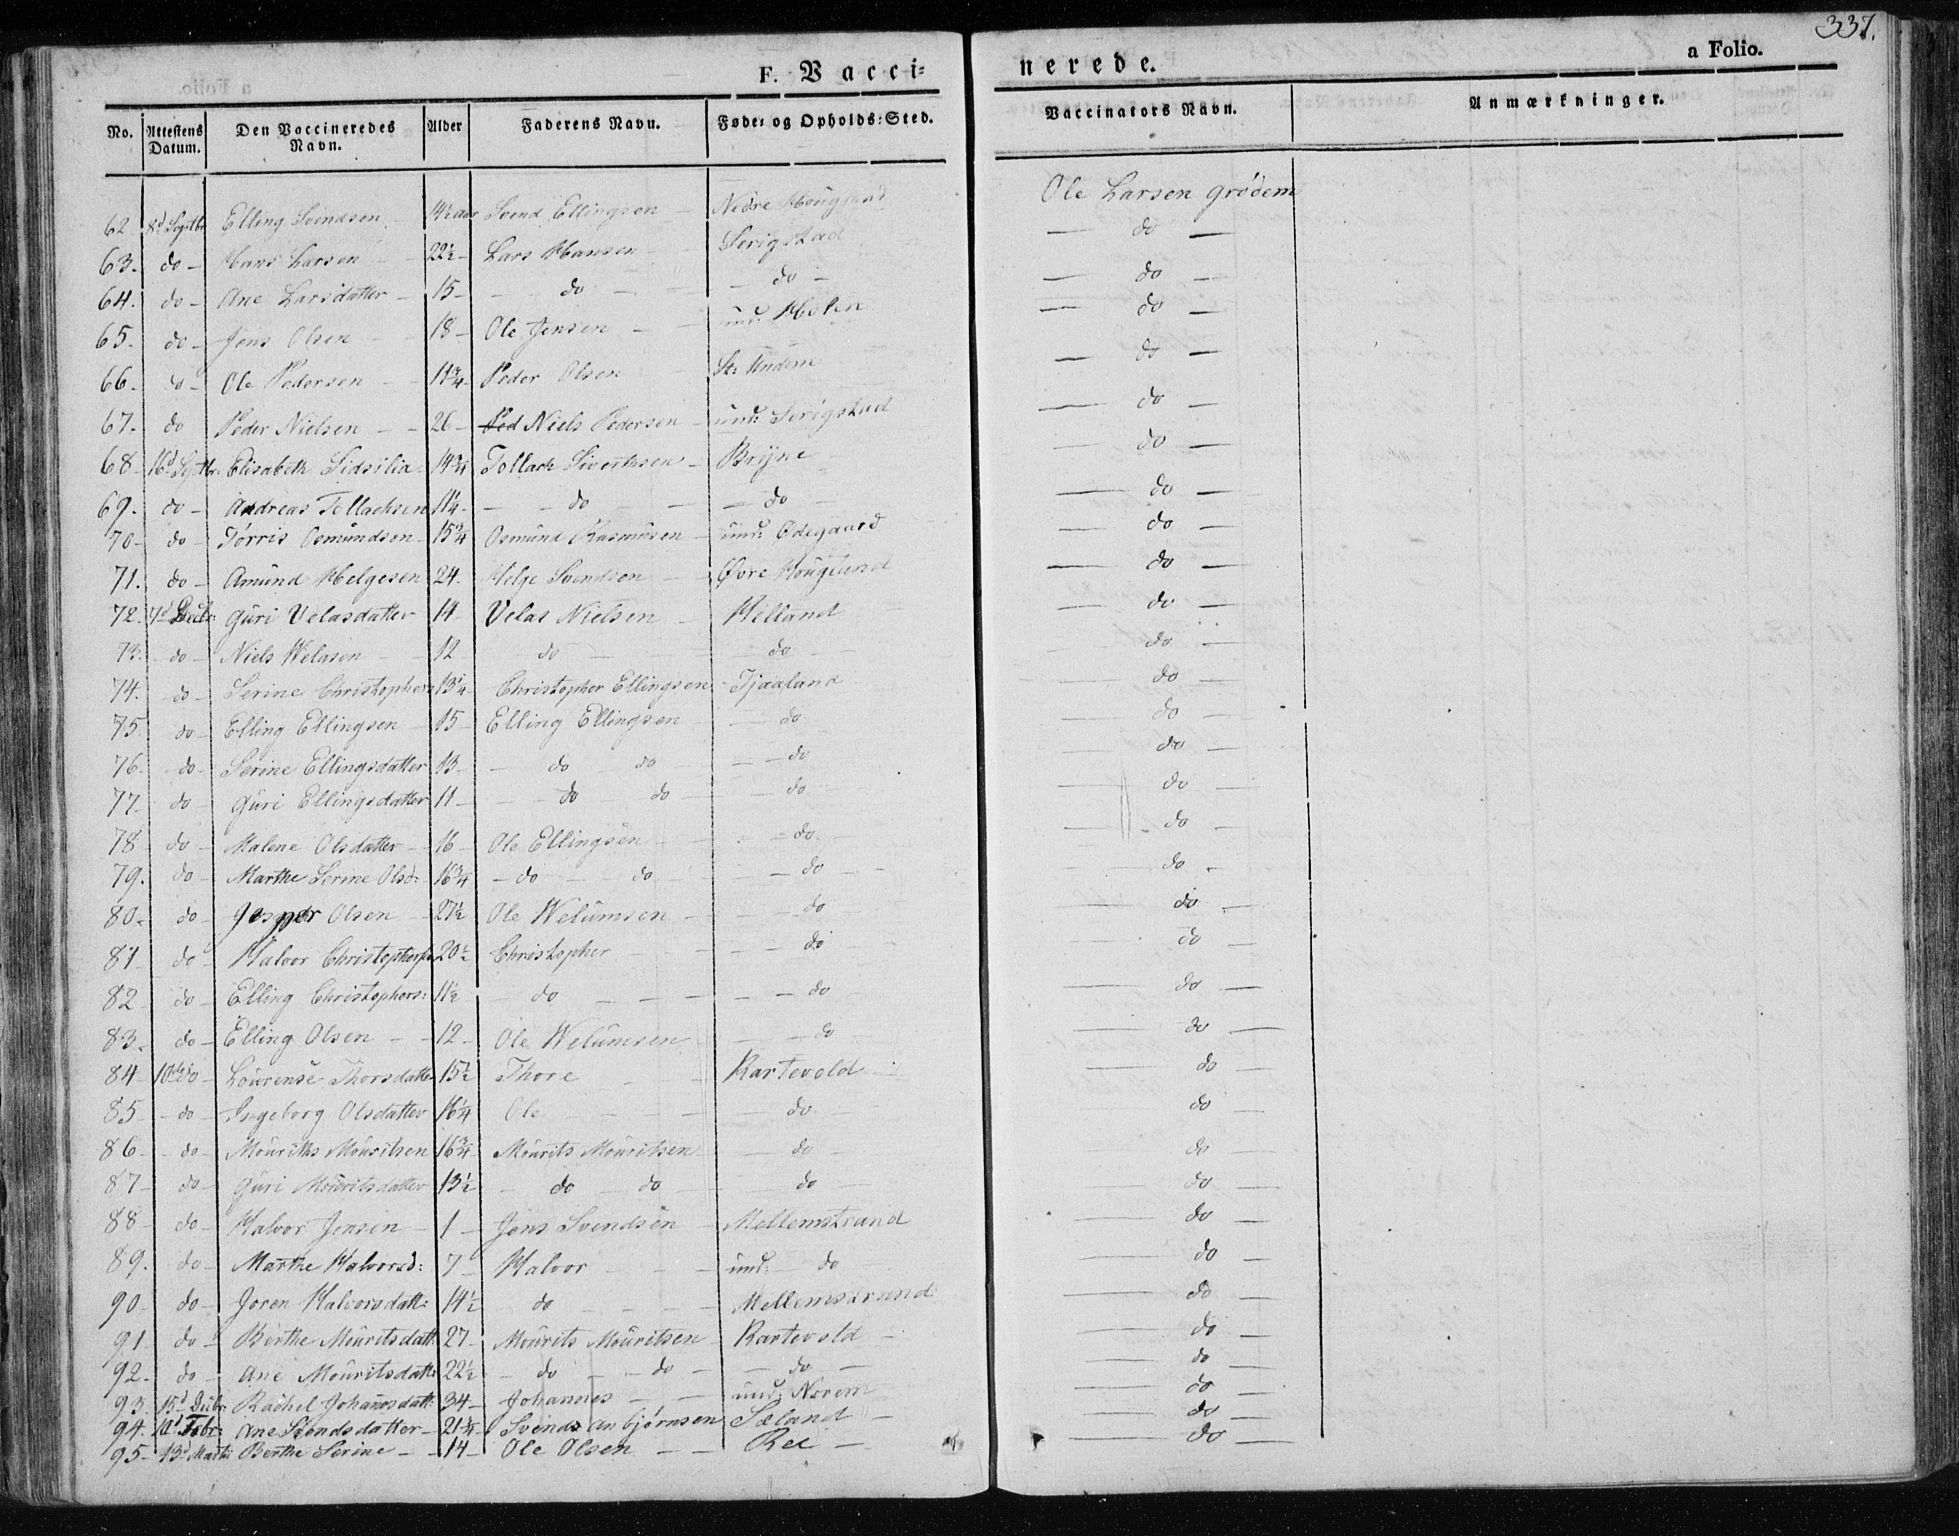 337.
F. Vacci=
nerede.
a Folio.
No. | Attestens Datum. | Den Vaccineredes Navn. | Alder | Faderens Navn. | Føde= og Opholds=Sted. | Vaccinators Navn. | Anmærkninger.
62. 8d Septbr Elling Svendsen 14½ aar Svend Ellingsen – Nedre Houglund Ole Larsen Grödem
63. do – Hans Larsen – 22½ – Lars Hansen Serigstad — do —
64. do – Ane Larsdatter – 15 – – do – – – do – — do —
65. do – Jens Olsen – 18 – Ole Jensen – und: Holen — do —
66. do – Ole Pedersen – 11¾ Peder Olsen St: Undem — do —
67. do Peder Nielsen – – 26 – Ped Niels Pedersen – und: Serigstad — do —
68 – 16d Septbr. Elisabeth Sidsilia 14¾ Tollach Sivertsen – Bryne — do —
69. do – Andreas Tollachsen 11¼ – – do – – do — do —
70 – do – Tørris Osmundsen 15¾ Osmund Rasmusen – und: Ødegaard — do —
71. do – Amund Helgesen 24. Helge Svendsen – Øvre Houglund — do —
72. 7d Decbr: Guri Velasdatter 14 – Velas Nielsen – Helland — do —
73. – do – Niels Welasen – 12 – do – – do – — do —
74. do – Serine Christophers 13¼ Christopher Ellingsen – Tjaaland — do —
75 do – Elling Ellingsen – 15 – Elling Ellingsen – do — do —
76. – do – Serine Ellingsdatter 13 – – do do – – – do — do —
77. – do – Guri Ellingsdatter 11 – – – do do – – do — do —
78 – do – Malene Olsdatter – 16 – Ole Ellingsen – – do — do —
79. do – Marthe Serine Olsd: 16¾ – do – do – – do – — do –
80. do – Jesper Olsen – 27½ Ole Welumsen – – do — do —
81 – do – Halvor Christophers 20½ Christopher – – – do — do —
82 – do – Elling Christophers: 11½ – do – – – – – do — do —
83. – do – Elling Olsen – – 12 – Ole Welumsen – – do — do —
84 – 10d do – Lourense Thorsdatter 15½ Thore – – Kartevold — do
85 – do – Ingeborg Olsdatter 16¼ Ole – – do — do
86 – – do – Mourits Mouritsen 16¾ Mourits Mouritsen – do – — do —
87 – – do – Guri Mouritsdatter 13½ – do – do – – do — do —
88 – do – Halvor Jensen – 1 – Jens Svendsen – Mellemstrand — do —
89. – do – Marthe Halvorsd: 7 – Halvor – – – und: do — do —
90 – do – Joren Halvorsdatt: 14½ do – – – Mellemstrand — do —
91 – do – Berthe Mouritsdatt: 27 – Mourits Mouritsen – Kartevold – — do —
92. – do – Ane Mouritsdatt: 22½ – do – – do – – do — — do —
93. – 15d Decbr: Rachel Johanesdatt: 34 – Johannes – – und: Nærem — do —
94. 10d Febr: Ane Svendsdatter – 21¼ Svend Anbjørnsen Sæland – — do —
95 – 13d Marti Berthe Serine – – 14 – Ole Olsen – – Ree – — do —